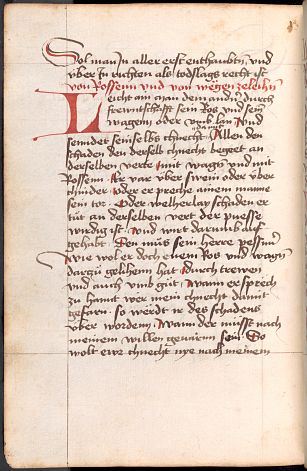 Sol man In aller erst enthaubtn vnd
vber In richten als todslags recht ist
von Rossenn vnd von wägen zeleihn
Leicht ain man dem andn durch
freuntschafft sein Ros vnd sein
wagenn oder vmb lon Vnd
darumb
sendet sein selbs chnecht Allen den
schaden den derselb chnecht begeet an
derselben verte mit wagn vnd mit
Rossenn Er var vber swein oder vber
chinder oder er preche ainem manne
sein tor Oder welherlay schaden er
tüt an derselben vert der puesse
wirdig ist Vnd wirt darumb auf
gehabt Den müs sein herre pessnn
wie wol er doch einem Ros vnd wagn
dargu gelihenn hat durch trewen
vnd auch vmb güt Wann er sprech
zu hannt wer mein chnecht damit
gefarn so werdt ir des schadens
vber wordenn Wann der müsst nach
meinem willen gewarnn sein So
wolt ewr chnecht nye nach meinem